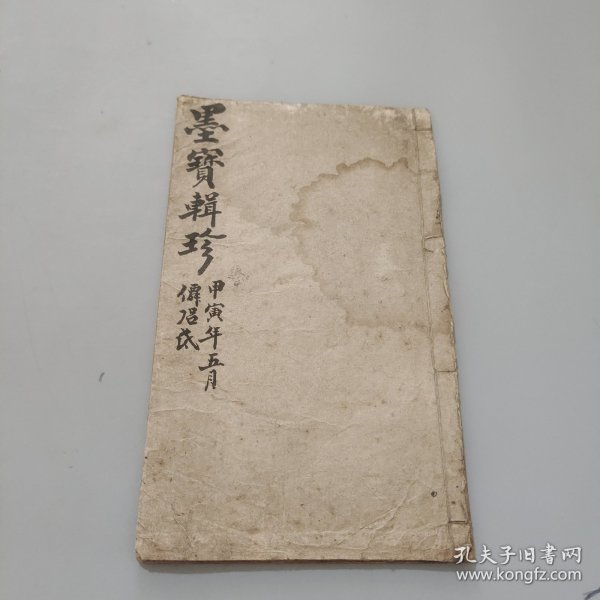 墨寶輯珍
甲寅年五月
僻侶氏
孔夫子旧书网
www.kongfz.com